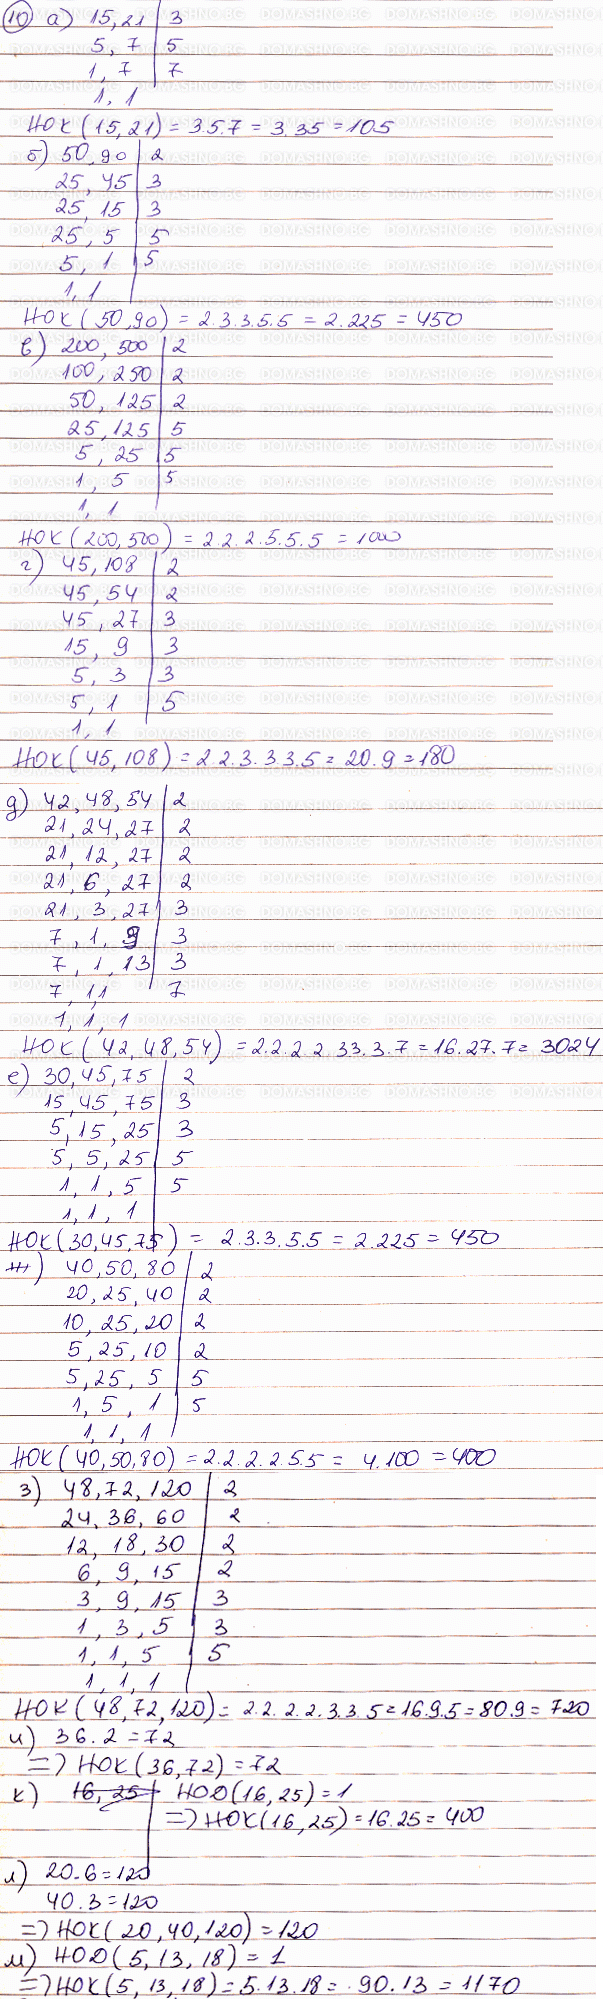 10 а) 15, 21 | 3
5, 7 | 5
1, 7 | 7
1, 1
НОК(15,21) = 3.5.7 = 3.35 = 105
б) 50, 90 | 2
25, 45 | 3
25, 15 | 3
25, 5 | 5
5, 1 | 5
1, 1
НОК(50,90) = 2.3.3.5.5 = 2.225 = 450
в) 200, 500 | 2
100, 250 | 2
50, 125 | 2
25, 125 | 5
5, 25 | 5
1, 5 | 5
1, 1
НОК(200,500) = 2.2.2.5.5.5 = 1000
г) 45, 108 | 2
45, 54 | 2
45, 27 | 3
15, 9 | 3
5, 3 | 3
5, 1 | 5
1, 1
НОК(45,108) = 2.2.3.3.3.5 = 20.9 = 180
д) 42, 48, 54 | 2
21, 24, 27 | 2
21, 12, 27 | 2
21, 6, 27 | 2
21, 3, 27 | 3
7, 1, 9 | 3
7, 1, 13 | 3
7, 1 1 7
1, 1, 1
НОК(42,48,54) = 2.2.2.2.33.3.7 = 16.27.7 = 3024
е) 30, 45, 75 | 2
15, 45, 75 | 3
5, 15, 25 | 3
5, 5, 25 | 5
1, 1, 5 | 5
1, 1, 1
НОК(30,45,75) = 2.3.3.5.5 = 2.225 = 450
ж) 40, 50, 80 | 2
20, 25, 40 | 2
10, 25, 20 | 2
5, 25, 10 | 2
5, 25, 5 | 5
1, 5, 1 | 5
1, 1, 1
НОК(40,50,80) = 2.2.2.2.5.5 = 4.100 = 400
з) 48, 72, 120 | 2
24, 36, 60 | 2
12, 18, 30 | 2
6, 9, 15 | 2
3, 9, 15 | 3
1, 3, 5 | 3
1, 1, 5 | 5
1, 1, 1
НОК(48,72,120) = 2.2.2.2.3.3.5 = 16.9.5 = 80.9 = 720
и) 36.2 = 72
=> НОК(36,72) = 72
к) 16, 25 | НОД(16,25) = 1
=> НОК(16,25) = 16.25 = 400
л) 20.6 = 120
40.3 = 120
=> НОК(20,40,120) = 120
м) НОД(5,13,18) = 1
=> НОК(5,13,18) = 5.13.18 = 90.13 = 1170
DOMASHNO.BG